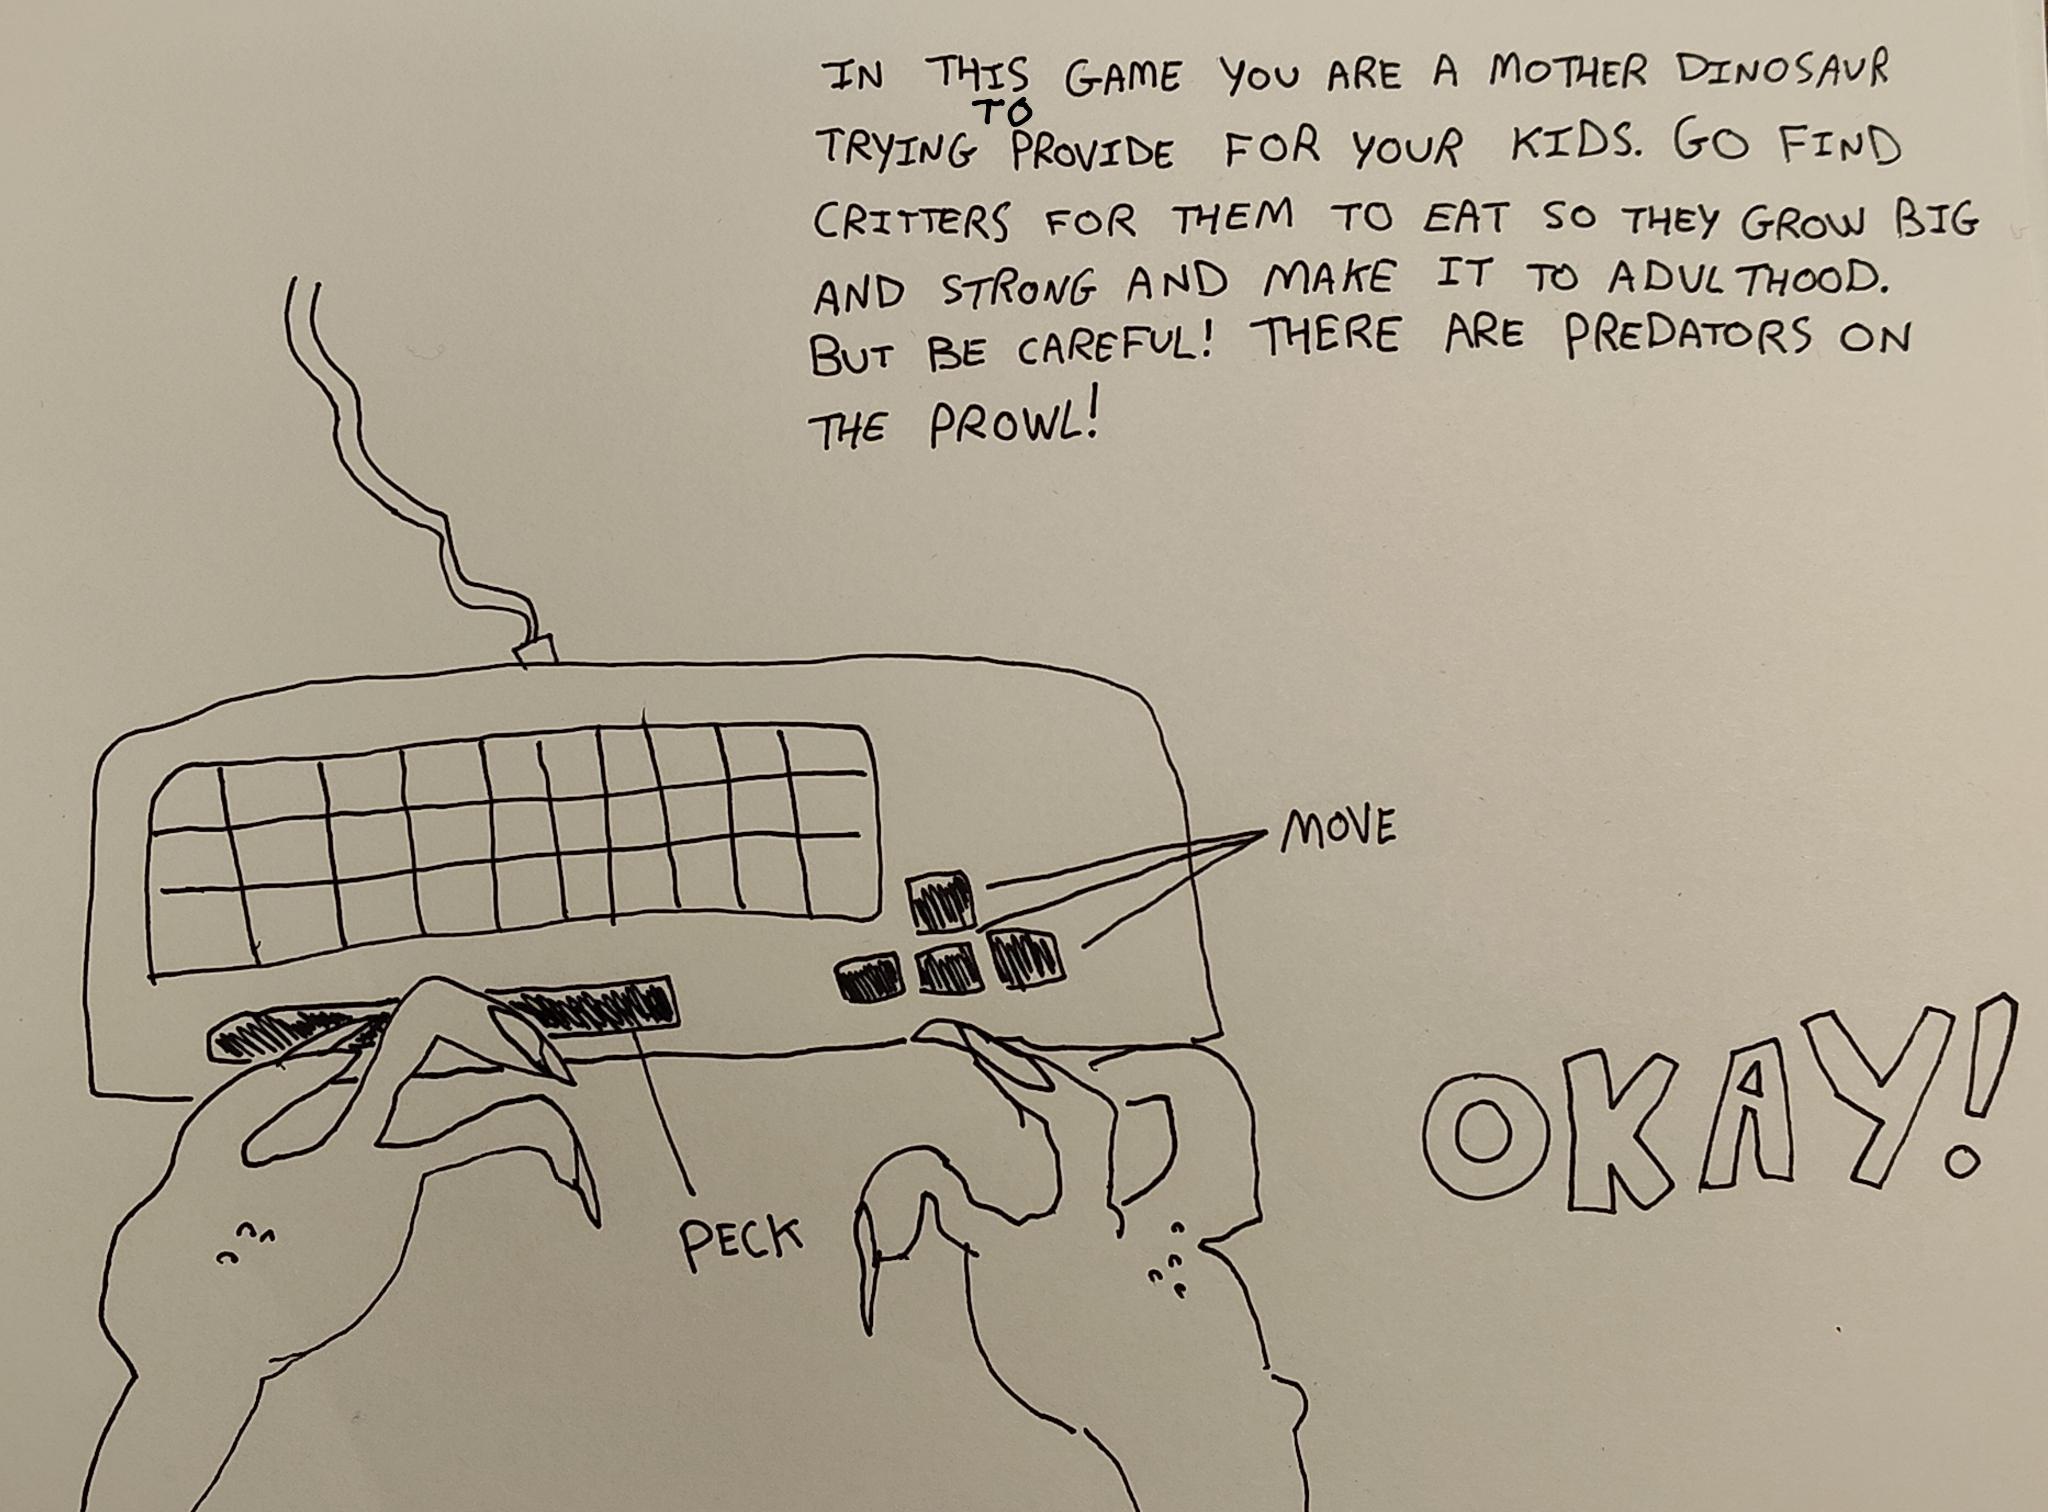 IN THIS GAME YOU ARE A MOTHER DINOSAUR
TRYING TO PROVIDE FOR YOUR KIDS. GO FIND
CRITTERS FOR THEM TO EAT SO THEY GROW BIG
AND STRONG AND MAKE IT TO ADULTHOOD.
BUT BE CAREFUL! THERE ARE PREDATORS ON
THE PROWL!
MOVE
OKAY!
PECK